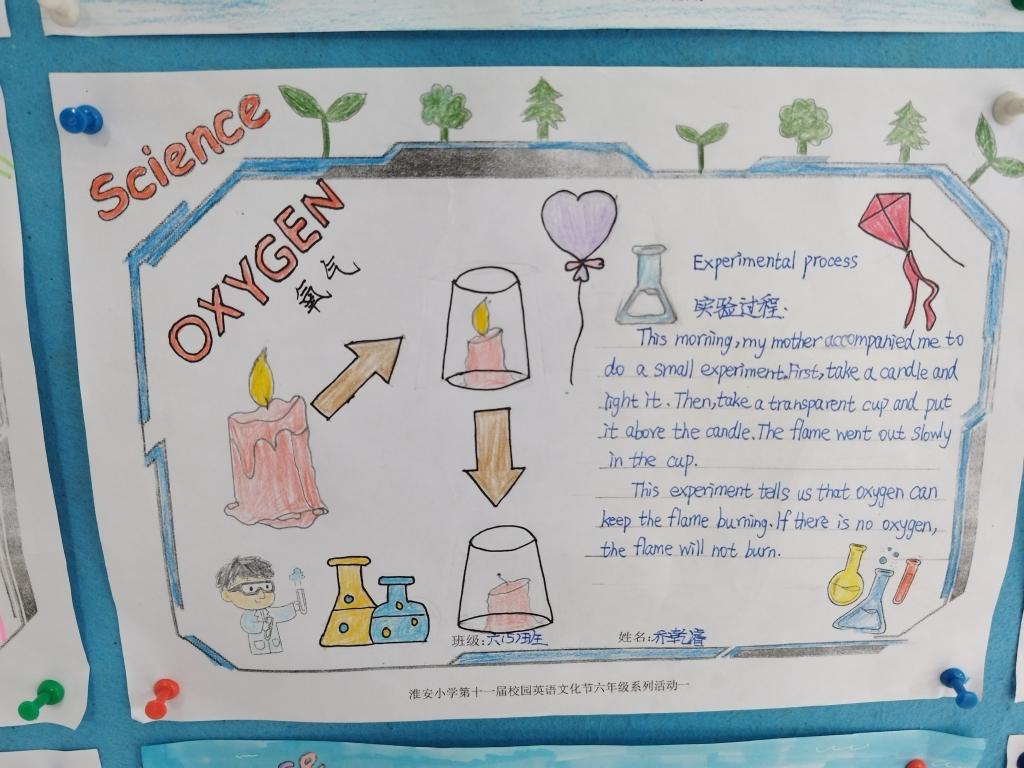 Science
OXYGEN
氧气
Experimental process
实验过程:
This morning, my mother accompanied me to
do a small experiment. First, take a candle and
light it. Then, take a transparent cup and put
it above the candle. The flame went out slowly
in the cup.
This experiment tells us that oxygen can
keep the flame burning. If there is no oxygen,
the flame will not burn.
班级:六(5)班 姓名:乔乾睿
淮安小学第十一届校园英语文化节六年级系列活动一